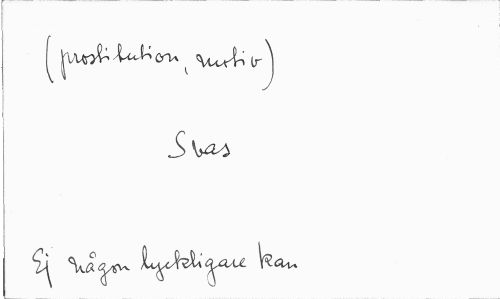 (prostitution, motiv)
Svas
Ej någon lyckligare kan